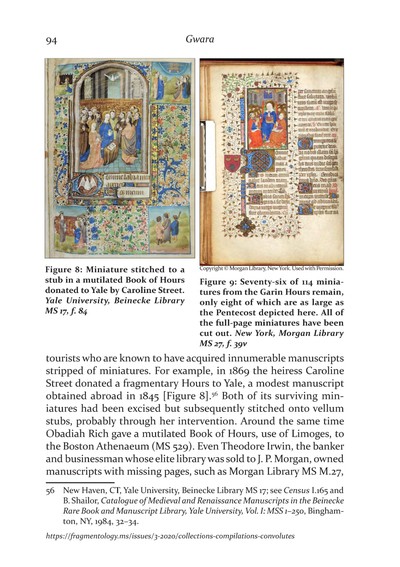 94
Gwara
Figure 8: Miniature stitched to a
stub in a mutilated Book of Hours
donated to Yale by Caroline Street.
Yale University, Beinecke Library
MS 17, f. 84
Copyright © Morgan Library, New York. Used with Permission.
Figure 9: Seventy-six of 114 minia-
tures from the Garin Hours remain,
only eight of which are as large as
the Pentecost depicted here. All of
the full-page miniatures have been
cut out. New York, Morgan Library
MS 27, f. 39v
tourists who are known to have acquired innumerable manuscripts
stripped of miniatures. For example, in 1869 the heiress Caroline
Street donated a fragmentary Hours to Yale, a modest manuscript
obtained abroad in 1845 [Figure 8].56 Both of its surviving min-
iatures had been excised but subsequently stitched onto vellum
stubs, probably through her intervention. Around the same time
Obadiah Rich gave a mutilated Book of Hours, use of Limoges, to
the Boston Athenaeum (MS 529). Even Theodore Irwin, the banker
and businessman whose elite library was sold to J. P. Morgan, owned
manuscripts with missing pages, such as Morgan Library MS M.27,
56 New Haven, CT, Yale University, Beinecke Library MS 17; see Census I.165 and
B. Shailor, Catalogue of Medieval and Renaissance Manuscripts in the Beinecke
Rare Book and Manuscript Library, Yale University, Vol. I: MSS 1–250, Bingham-
ton, NY, 1984, 32–34.
https://fragmentology.ms/issues/3-2020/collections-compilations-convolutes